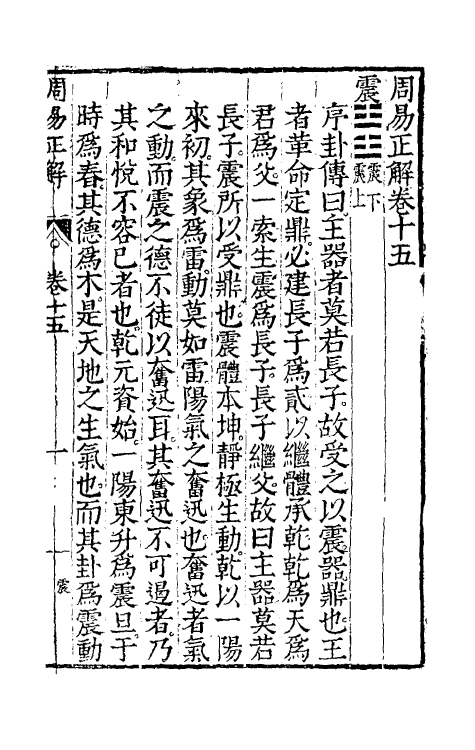 周易正解卷十五
震 震下 震上
序卦傳曰主器者莫若長子故受之以震器鼎也王
者革命定鼎必建長子爲貳以繼體承乾乾爲天爲
君爲父一索生震爲長子長子繼父故曰主器莫若
長子震所以受鼎也震體本坤靜極生動乾以一陽
來初其象爲雷動莫如雷陽氣之奮迅也奮迅者氣
之動而震之德不徒以奮迅耳其奮迅不可遏者乃
其和悅不容已者也乾元資始一陽東升爲震旦于
時爲春其德爲木是天地之生氣也而其卦爲震動
周易正解 卷十五 一 震